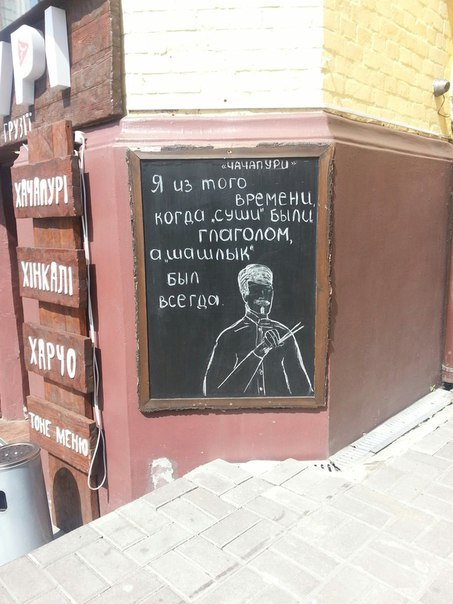 УРІ
ГРУЗІЇ
ХАЧАПУРІ
ХІНКАЛІ
ХАРЧО
ТОНЕ МЕНЮ
«ЧАЧАПУРИ»
Я ИЗ ТОГО
ВРЕМЕНИ,
КОГДА „СУШИ" БЫЛИ
ГЛАГОЛОМ,
А „ШАШЛЫК"
БЫЛ
ВСЕГДА.